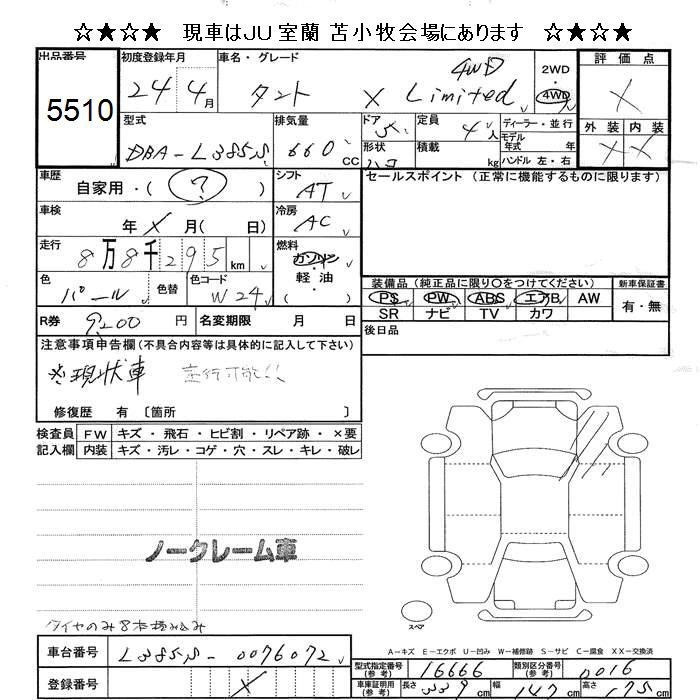 ☆★☆★ 現車はJU室蘭 苫小牧会場にあります ☆★☆★
出品番号 初度登録年月 車名・グレード 2WD 評価点
5510 24 4月 タント X Limited 4WD 4WD X
外装 内装
X X
型式 排気量 ドア 定員 ディーラー・並行
DBA-L385S 660cc 5 4人 モデル年式 年
形状 積載 kg ハンドル 左・右
車歴 シフト セールスポイント (正常に機能するものに限ります)
自家用・( ? ) AT
車検 冷房
年 X 月( 日) AC
走行 燃料
8万8千295km ガソリン
軽油
色 色替 色コード ( )
パール W24
装備品 (純正品に限り○をつけてください) 新車保証書
PS PW ABS エアB AW 有・無
SR ナビ TV カワ
R券 円 名変期限 月 日 後日品
注意事項申告欄(不具合内容等は具体的に記入して下さい)
※現状車 走行不能!!
修復歴 有 〔箇所 〕
検査員 FW キズ・飛石・ヒビ割・リペア跡・×要
記入欄 内装 キズ・汚レ・コゲ・穴・スレ・キレ・破レ
ノークレーム車
スペア
タイヤのみ8本積み込み
A-キズ E-エクボ U-凹み W-補修跡 S-サビ C-腐食 XX-交換済
車台番号 L385S-0076072 型式指定番号(参考) 16666 類別区分番号(参考) 0016
登録番号 X 車庫証明用(参考) 長さ 339cm 幅 147cm 高さ 175cm